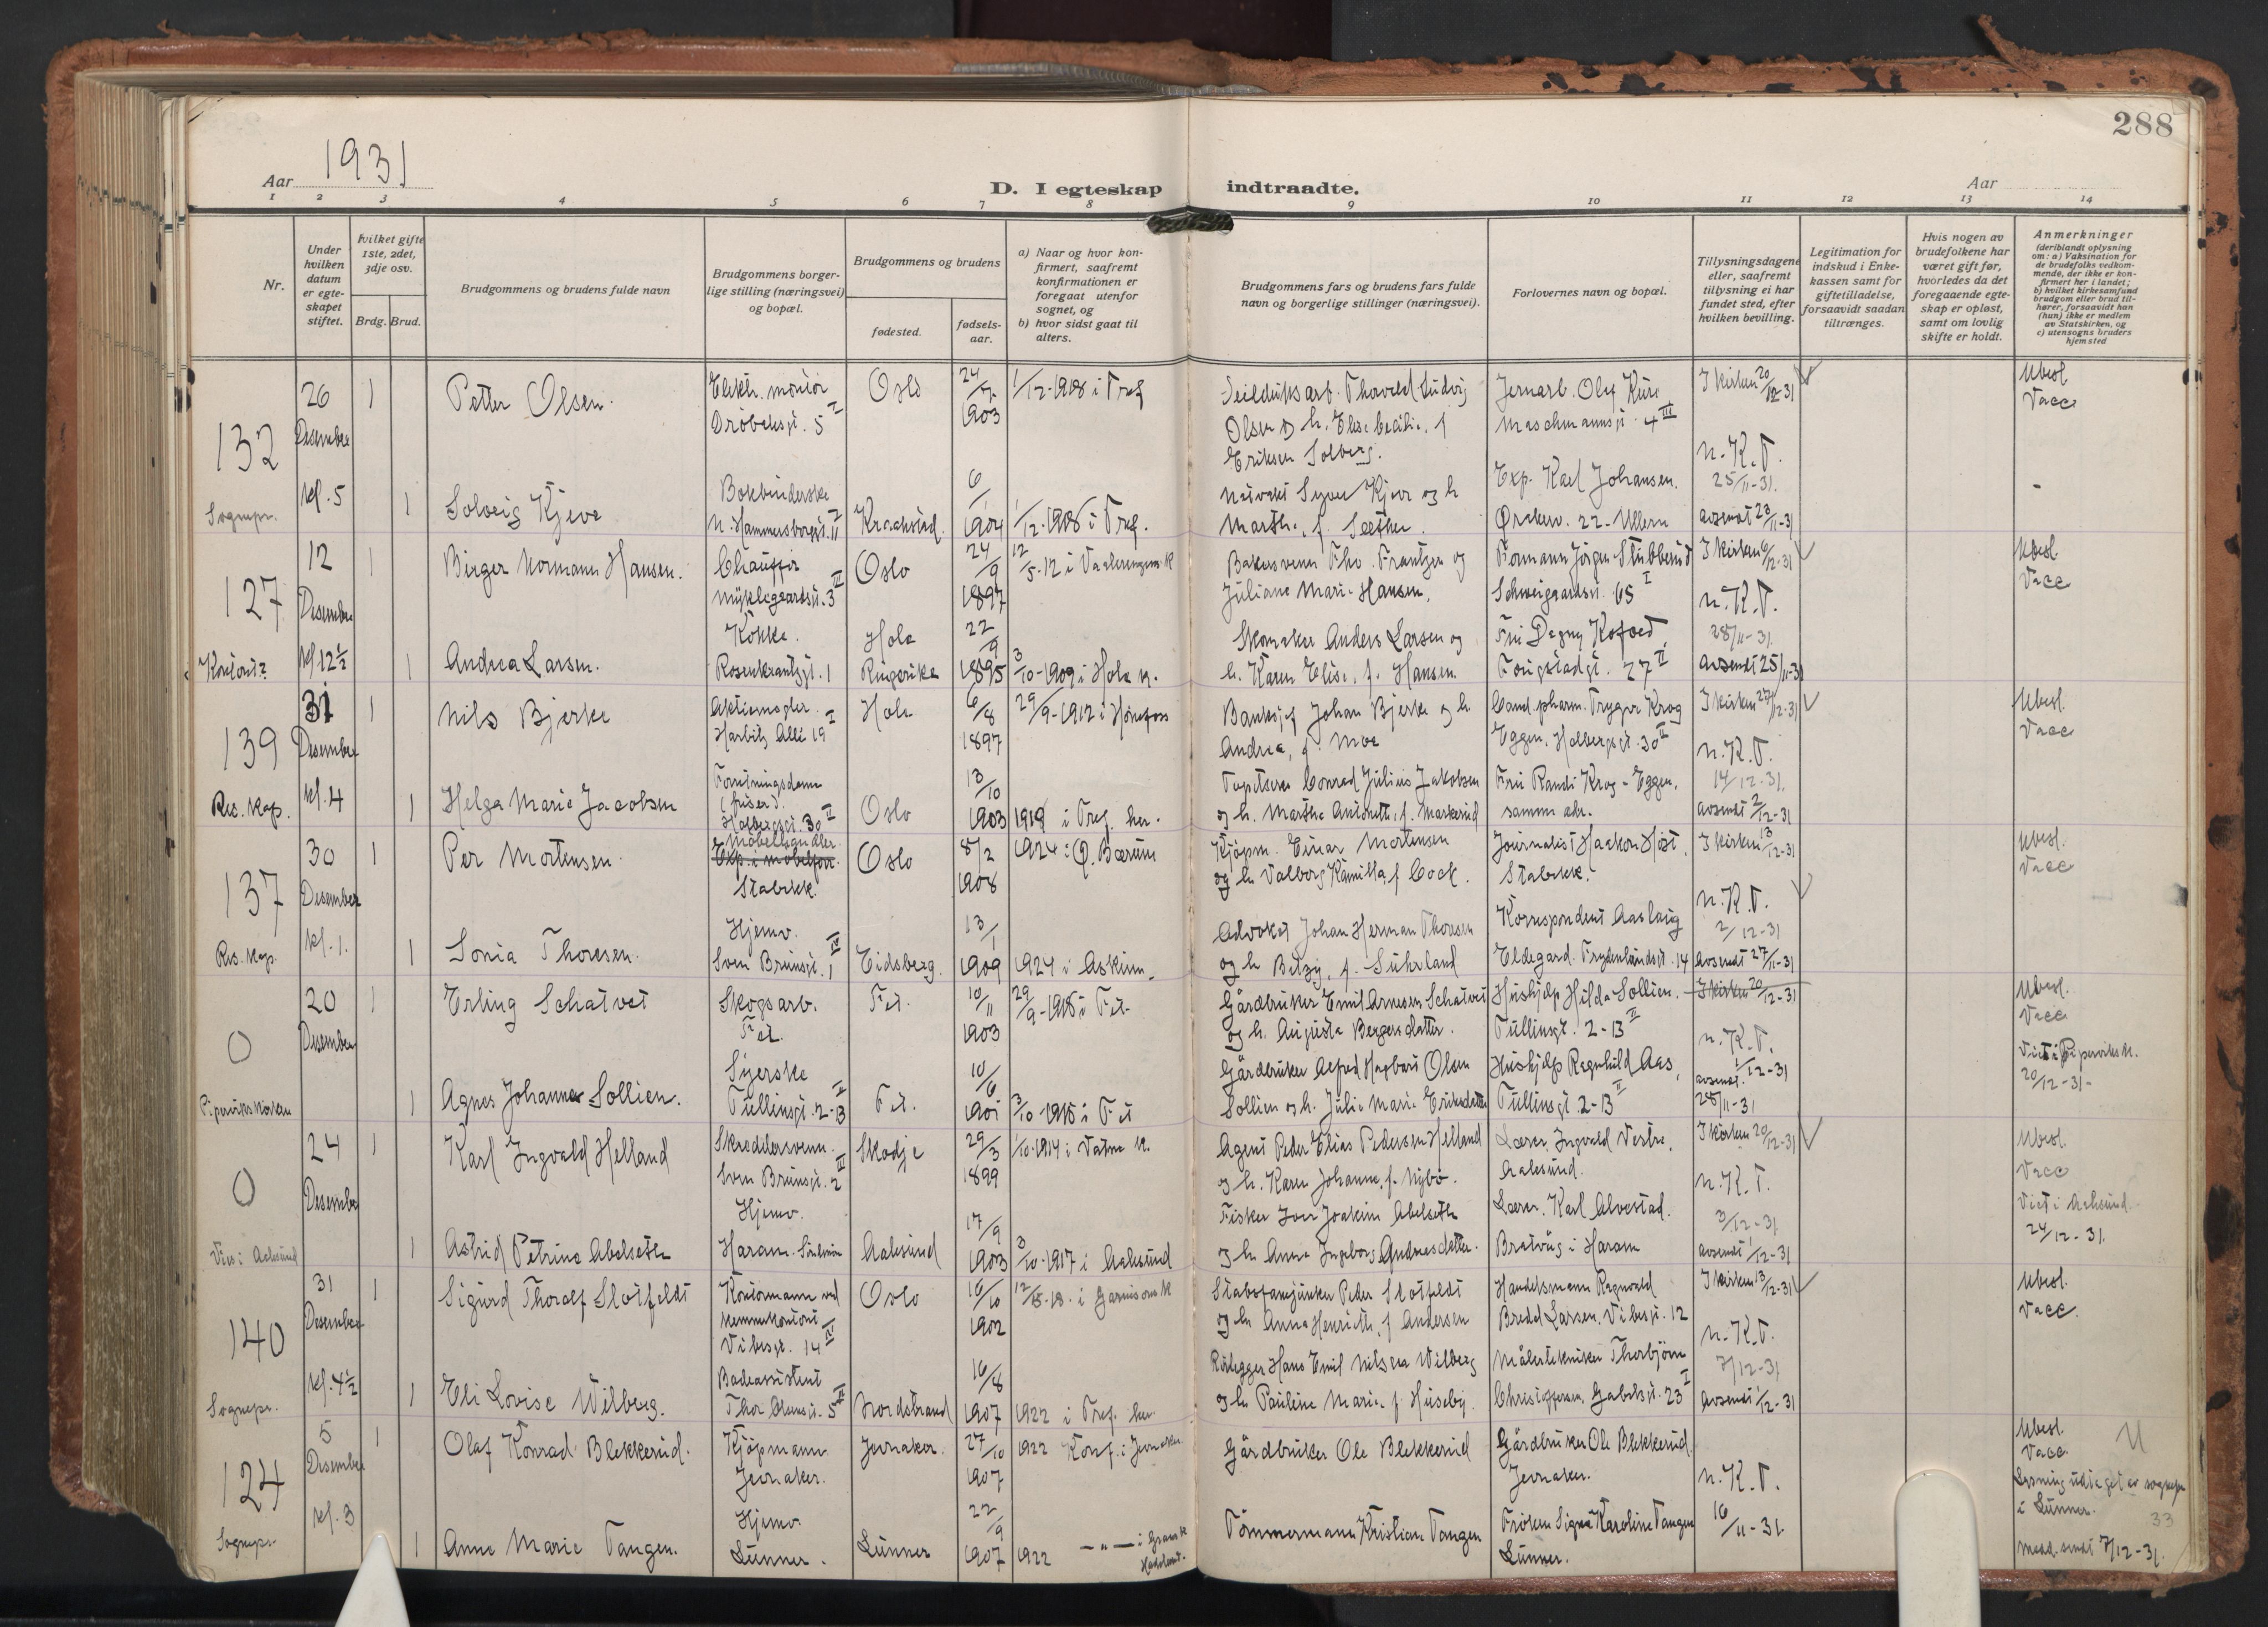 288
Aar 1931
D. I egteskap indtraadte.
Aar
1 2 3 4 5 6 7 8 9 10 11 12 13 14
Nr.
Under hvilken datum er egteskapet stiftet.
Hvilket gifte 1ste, 2det, 3dje osv.
Brdg. Brud.
Brudgommens og brudens fulde navn
Brudgommens borgerlige stilling (næringsvei) og bopæl.
Brudgommens og brudens
fødested.
fødselsaar.
a) Naar og hvor konfirmert, saafremt konfirmationen er foregaat utenfor sognet, og
b) hvor sidst gaat til alters.
Brudgommens fars og brudens fars fulde navn og borgerlige stillinger (næringsvei).
Forlovernes navn og bopæl.
Tillysningsdagene eller, saafremt tillysning ei har fundet sted, efter hvilken bevilling.
Legitimation for indskud i Enkekassen samt for giftetilladelse, forsaavidt saadan tiltrænges.
Hvis nogen av brudefolkene har været gift før, hvorledes da det foregaaende egteskap er opløst, samt om lovlig skifte er holdt.
Anmerkninger (deriblandt oplysning om: a) Vaksination for de brudefolks vedkommende, der ikke er konfirmert her i landet; b) hvilket kirkesamfund brudgom eller brud tilhører, forsaavidt han (hun) ikke er medlem av Statskirken, og c) utensogns bruders hjemsted
132
26 Desember kl. 5
Sognepr.
1 Petter Olsen.
Elektr. montør
Drøbaksgt. 5 I
Oslo
24/7 1903
1/12-1918 i Tref
Olsen og h. Elise Cecilie, f.
Eriksen Solberg.
Jernarb. Olaf Kure
Maschmannsgt. 4 III
I kirken 20/12-31
n.K.T.
25/11-31.
avsendt 23/11-31
Ubesl.
Vacc
1 Solveig Kjeve
Bokbinderske
N. Hammersborggt. 11 I
Kraakstad
6/1 1904
1/12-1918 i Tref.
Marthe, f. Sæther.
Exp. Karl Johansen.
22 - Ullern
127
12 Desember kl 12½
1 Birger Normann Hansen.
Chauffør
Myklegaardsgt. 3 III
Oslo
24/9 1897
12/5-12 i Vaalerengens K
Bakersvenn Tho. Frantzen og
Juliane Marie Hansen.
Formann Jørgen Stubberud
Schweigaardsgt. 65 I
I kirken 6/12-31
n.K.T.
28/11-31.
avsendt 25/11-31
Ubesl.
Vacc
1 Andrea Larsen.
Kokke.
Rosenkrantzgt. 1
Hole
Ringerike
22/9 1895
3/10-1909 i Hole k.
Skomaker Anders Larsen og
h. Karen Elise, f. Hansen.
Fru Dagny Kofoed,
27 II
139
31 Desember kl. 4
Res. kap.
1 Nils Bjerke
Aktiemegler.
Harbitz Allé 19 I
Hole
6/8 1897
29/9-1912 i Hønefoss
Banksjef Johan Bjerke og h.
Andrea, f. Moe
Cand. pharm. Trygve Krog
Eggen, Holbergsgt. 30 II
I kirken 27/12-31
n.K.T.
14/12-31.
avsendt 2/12-31
Ubesl.
Vacc
1 Helga Marie Jacobsen
Forretningsdame
(frisør).
Holbergsgt. 30 II
Oslo
13/10 1903
1919 i Tref. her.
Tapetserer Conrad Julius Jakobsen
og h. Marthe Antonette, f. Markerud
Fru Randi Krog-Eggen,
samme adr.
137
30 Desember kl. 1.
Res. kap.
1 Per Mortensen.
Møbelhandler
Exp. i møbelforr.
Stabekk.
Oslo
8/2 1908
1924 i Ø. Bærum
Kjøpm. Einar Mortensen
og h. Valborg Kamilla, f. Cock.
Journalist Haakon Høst,
Stabekk.
I kirken 13/12-31
n.K.T.
2/12-31
avsendt 27/11-31
Ubesl.
Vacc
1 Sonia Thoresen.
Hjemv.
Sven Brunsgt. 1 IV
Eidsberg.
13/1 1909
1924 i Askim.
Advokat Johan Herman Thoresen
og h. Betzy, f. Suhrland
Korrespondent Aaslaug
Eldegard. Frydenlundsgt. 14
0
20 Desember
Pipervikskirken
1 Erling Schatvet
Skogsarb.
Fet.
Fet.
10/11 1903
29/9-1918 i Fet.
Gårdbruker Emil Arnesen Schatvet
og h. Augusta Bergersdatter.
Hushjelp Hilda Sollien.
Tullinsgt. 2-B II
I kirken 20/12-31
n.K.T.
1/12-31
avsendt
28/11-31
Ubesl.
Vacc
Viet i Piperviksk.
20/12-31-
1 Agnes Johanna Sollien.
Syerske
Tullinsgt. 2-B II
Fet.
10/6 1901
3/10-1915 i Fet
Gårdbruker Alfred Hagbart Olsen
Sollien og h. Julie Marie Eriksdatter
Hushjelp Ragnhild Aas,
Tullinsgt. 2-B II
0
24 Desember
Vies i Aalesund
1 Karl Ingvald Helland
Skreddersvenn.
Sven Brunsgt. 2 III
Skodje
29/3 1899
1/10-1914 i Vatne k.
Agent Peder Elias Pedersen Helland
og h. Karen Johanne, f. Nybø.
Lærer Ingvald Vestre,
Aalesund.
I kirken 20/12-31
n.K.T.
3/12-31
avsendt 1/12-31
Ubesl.
Vacc
Viet i Aalesund.
24/12-31.
1 Astrid Petrine Abelseth
Hjemv.
Haram. Sunnmøre
Aalesund
17/9 1903
3/10-1917 i Aalesund
Fisker Iver Joakim Abelseth
og h. Anna Ingeborg Andreasdatter.
Lærer Karl Alvestad.
Brattvåg i Haram
140
31 Desember kl. 4½
Sognepr.
1 Sigurd Thoralf Slotfeldt
Kontormann ved
Kemnerkontoret
Vibesgt. 14 IV
Oslo
16/10 1902
12/5-18. i Garnisons K
Stabsfanejunker Peder Slotfeldt
og h. Anna Henriette, f. Andersen
Handelsmann Ragnvald
Bredo Larsen, Vibesgt. 12
I kirken 13/12-31
n.K.T.
7/12-31
avsendt 1/12-31
Ubesl.
Vacc.
1 Eli Lovise Wilberg.
Badeassistent
Thor Olsensgt. 5
Nordstrand
16/8 1907
1922 i Tref. her
Rørlegger Hans Emil Nilsen Wilberg
og h. Pauline Marie, f. Huseby.
Målertekniker Thorbjørn
Christoffersen, Gabelsgt. 23 I
124
5 Desember kl. 3
Sognepr.
1 Olaf Konrad Blekkerud.
Kjøpmann
Jevnaker.
Jevnaker.
27/10 1907
1922 Konf. i Jevnaker
Gårdbruker Ole Blekkerud
Gårdbruker Ole Blekkerud
Jevnaker.
n.K.T.
16/11-31.
Ubesl.
Vacc
Lysning udtaget av sognepr
i Lunner.
33
Medd. sendt 7/12-31.
1 Anne Marie Tangen.
Hjemv.
Lunner.
Lunner
22/9 1907
1922 — " — i Gran k
Hadeland.
Tømmermann Kristian Tangen
Frøken Signe Karoline Tangen
Lunner.